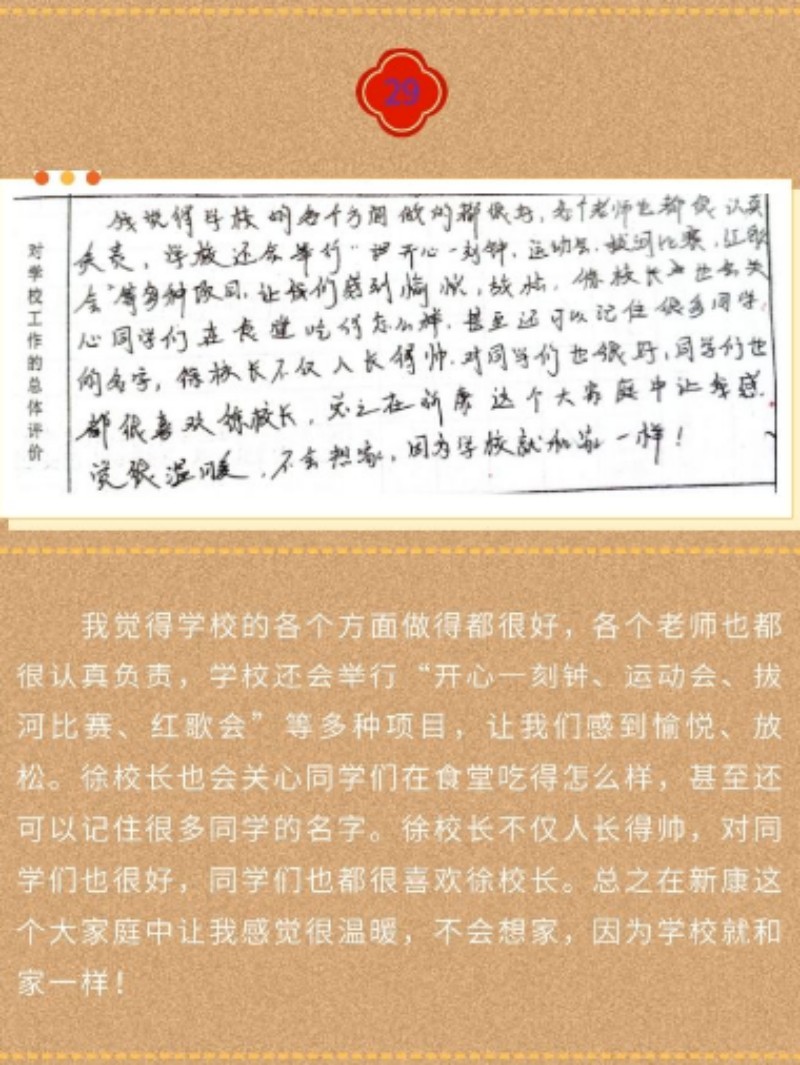 29
对学校工作的总体评价
我觉得学校的各个方面做的都很好,各个老师也都很认真
负责,学校还会举行“开心一刻钟、运动会、拔河比赛、红歌
会”等多种项目,让我们感到愉悦、放松。徐校长也会关
心同学们在食堂吃得怎么样,甚至还可以记住很多同学
的名字,徐校长不仅人长得帅,对同学们也很好,同学们也
都很喜欢徐校长,总之在新康这个大家庭中让我感
觉很温暖,不会想家,因为学校就和家一样!
我觉得学校的各个方面做得都很好,各个老师也都
很认真负责,学校还会举行“开心一刻钟、运动会、拔
河比赛、红歌会”等多种项目,让我们感到愉悦、放
松。徐校长也会关心同学们在食堂吃得怎么样,甚至还
可以记住很多同学的名字。徐校长不仅人长得帅,对同
学们也很好,同学们也都很喜欢徐校长。总之在新康这
个大家庭中让我感觉很温暖,不会想家,因为学校就和
家一样!